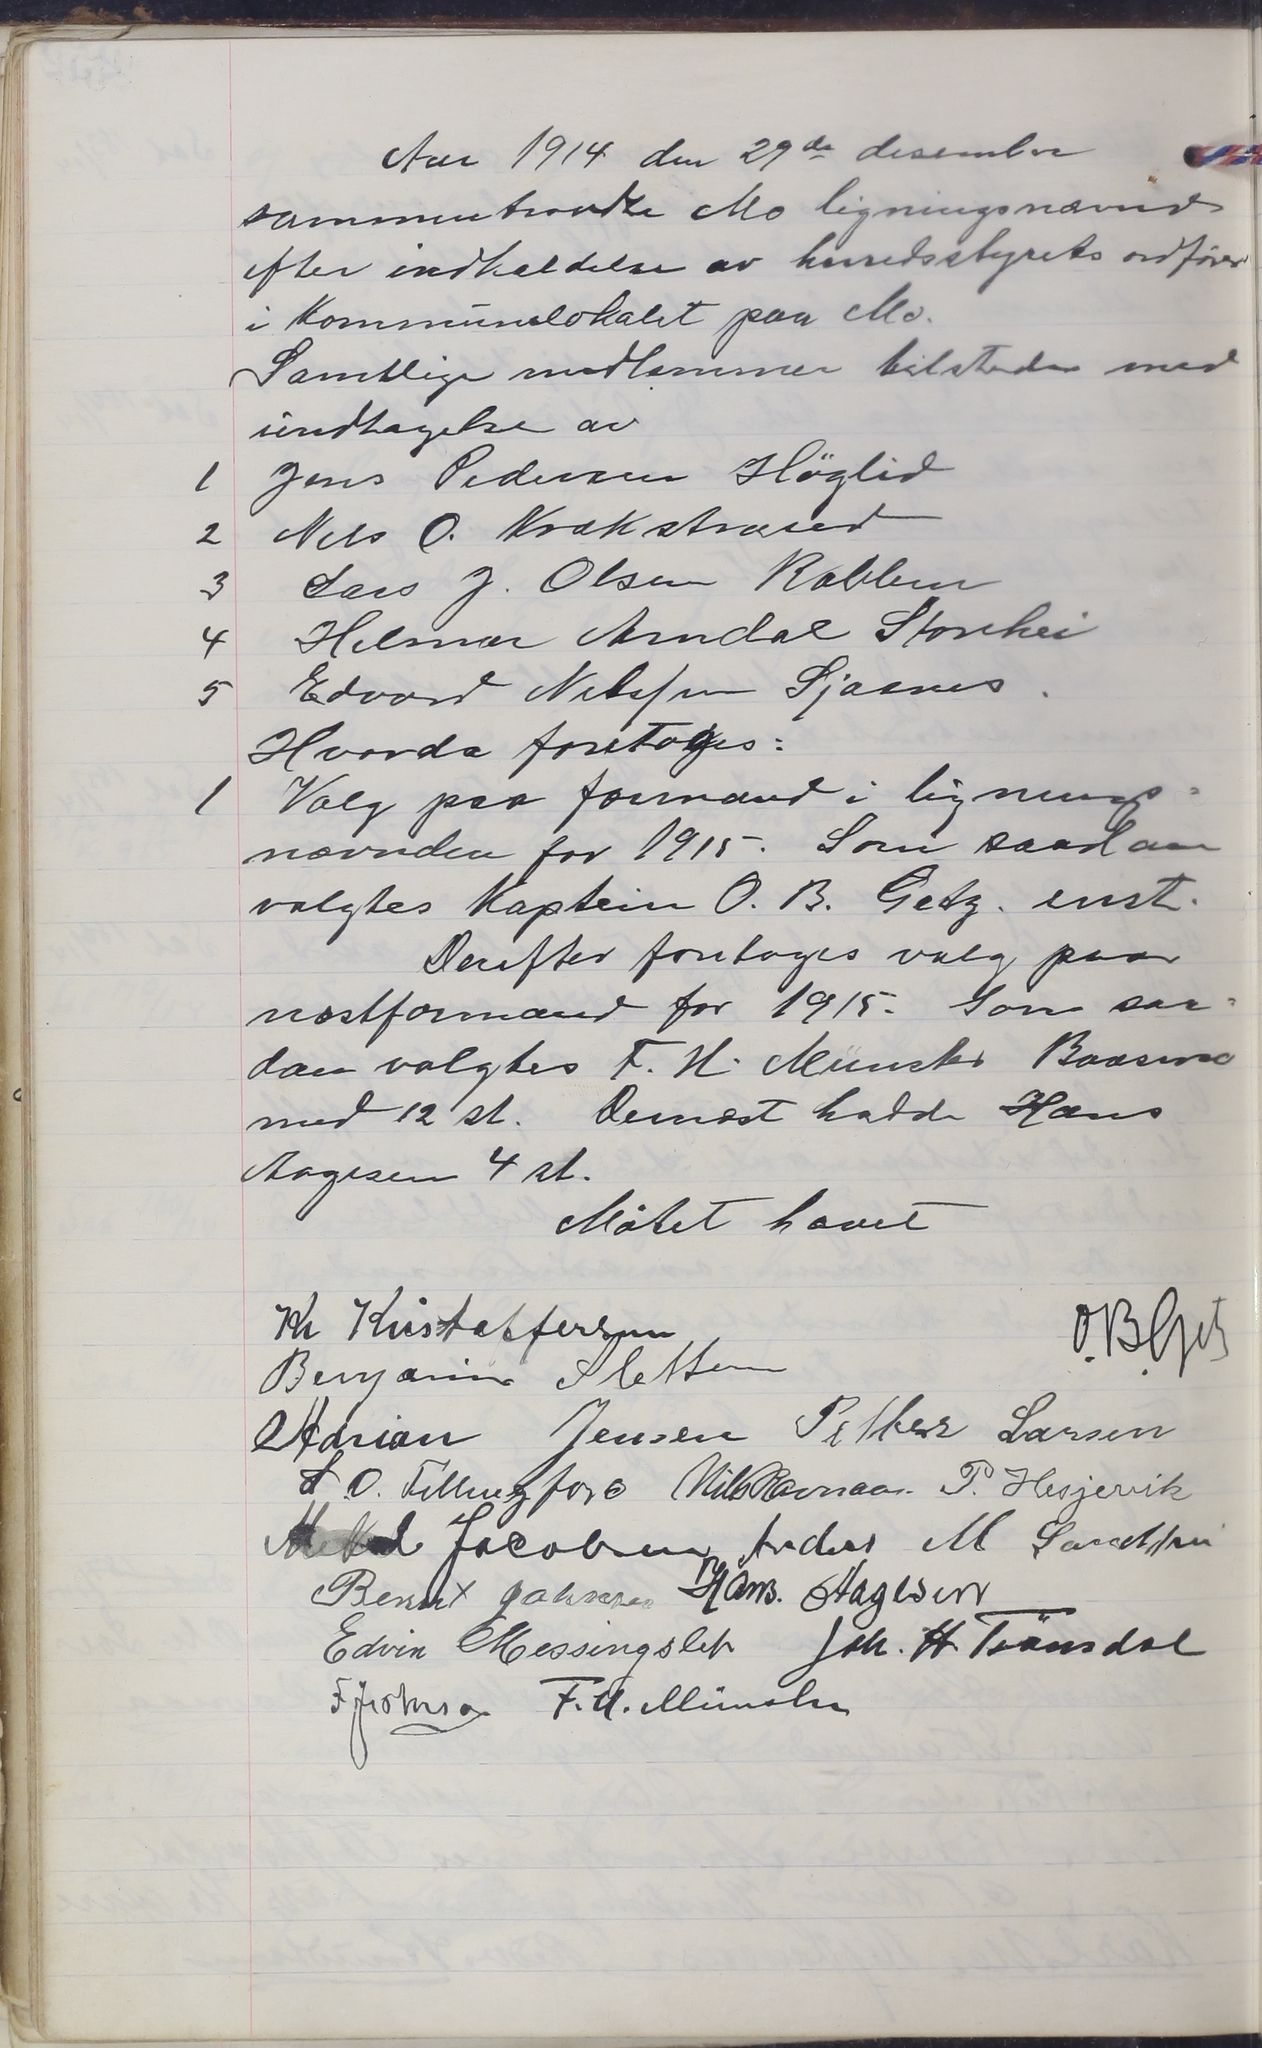 Aar 1914 den 29de desember
sammentraadte Mo ligningsnævnd
efter indkaldelse av herredsstyrets ordfører
i Kommunelokalet paa Mo.
Samtlige medlemmer tilstede med
undtagelse av
1 Jens Pedersen Höglid
2 Nils O. Krokstrand
3 Lars J. Olsen
4 Hilmar Arndal Storhei
5 Edvard Nilssen Sjaanes.
Hvorda foretoges:
1 Valg paa formand i lignings-
nævnden for 1915. Som saadan
valgtes Kaptein O. B. Getz. enst.
Derefter foretoges valg paa
næstformand for 1915. Som saa-
dan valgtes F. H. Münster Baasmo
med 12 st. Dernæst hadde Hans
Aagesen 4 st.
Mötet hævet
Kr Kristoffersen O. B. Getz
Benjamin Sletten
Adrian Jensen Petter Larsen
O. P. Hesjevik
Jacobsen Anders M
Bernt Hans. Aagesen
Edvin Messingslet Joh. H. Tränsdal
F. H. Münster